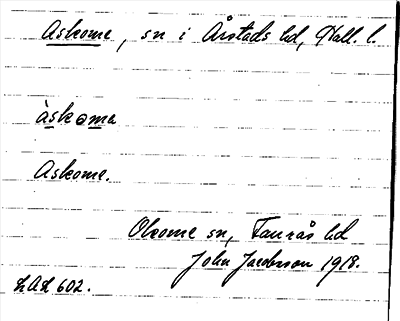 Askome, sn i Årstads hd, Hall. l.
àskoma
Askome.
Okome sn, Faurås hd
John Jacobsson 1918.
LAL 602.